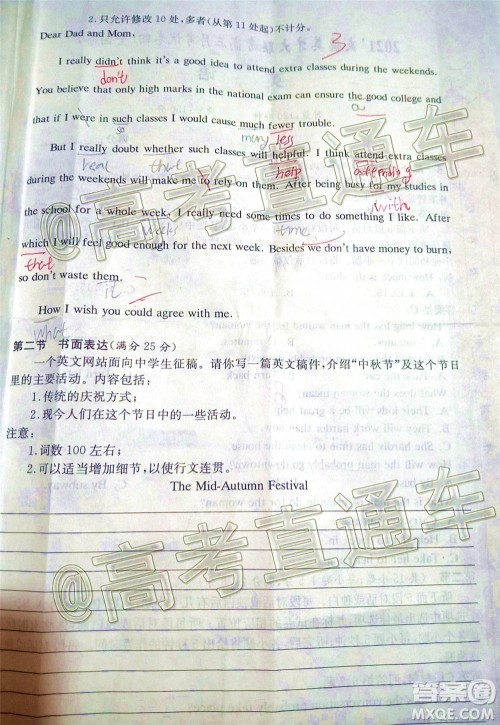 2. 只允许修改10处,多者(从第11处起)不计分。
Dear Dad and Mom,
3
I really didn't think it's a good idea to attend extra classes during the weekends.
don't
You believe that only high marks in the national exam can ensure the good college and
that if I were in such classes I would cause much fewer trouble.
so
many less
But I really doubt whether such classes will helpful. I think attend extra classes
real that help attending
during the weekends will make me to rely on them. After being busy for my studies in
with
the school for a whole week, I really need some times to do something I like. After
weeks time
which I will feel good enough for the next week. Besides we don't have money to burn,
that
so don't waste them,
it
How I wish you could agree with me.
what
第二节 书面表达(满分25分)
一个英文网站面向中学生征稿。请你写一篇英文稿件,介绍“中秋节”及这个节日
里的主要活动。内容包括:
1.传统的庆祝方式;
2.现今人们在这个节日中的一些活动。
注意:
1.词数100左右;
2.可以适当增加细节,以使行文连贯。
The Mid-Autumn Festival
@高考直通车
@高考直通车
@高考直通车
答案圈
MXQE.COM